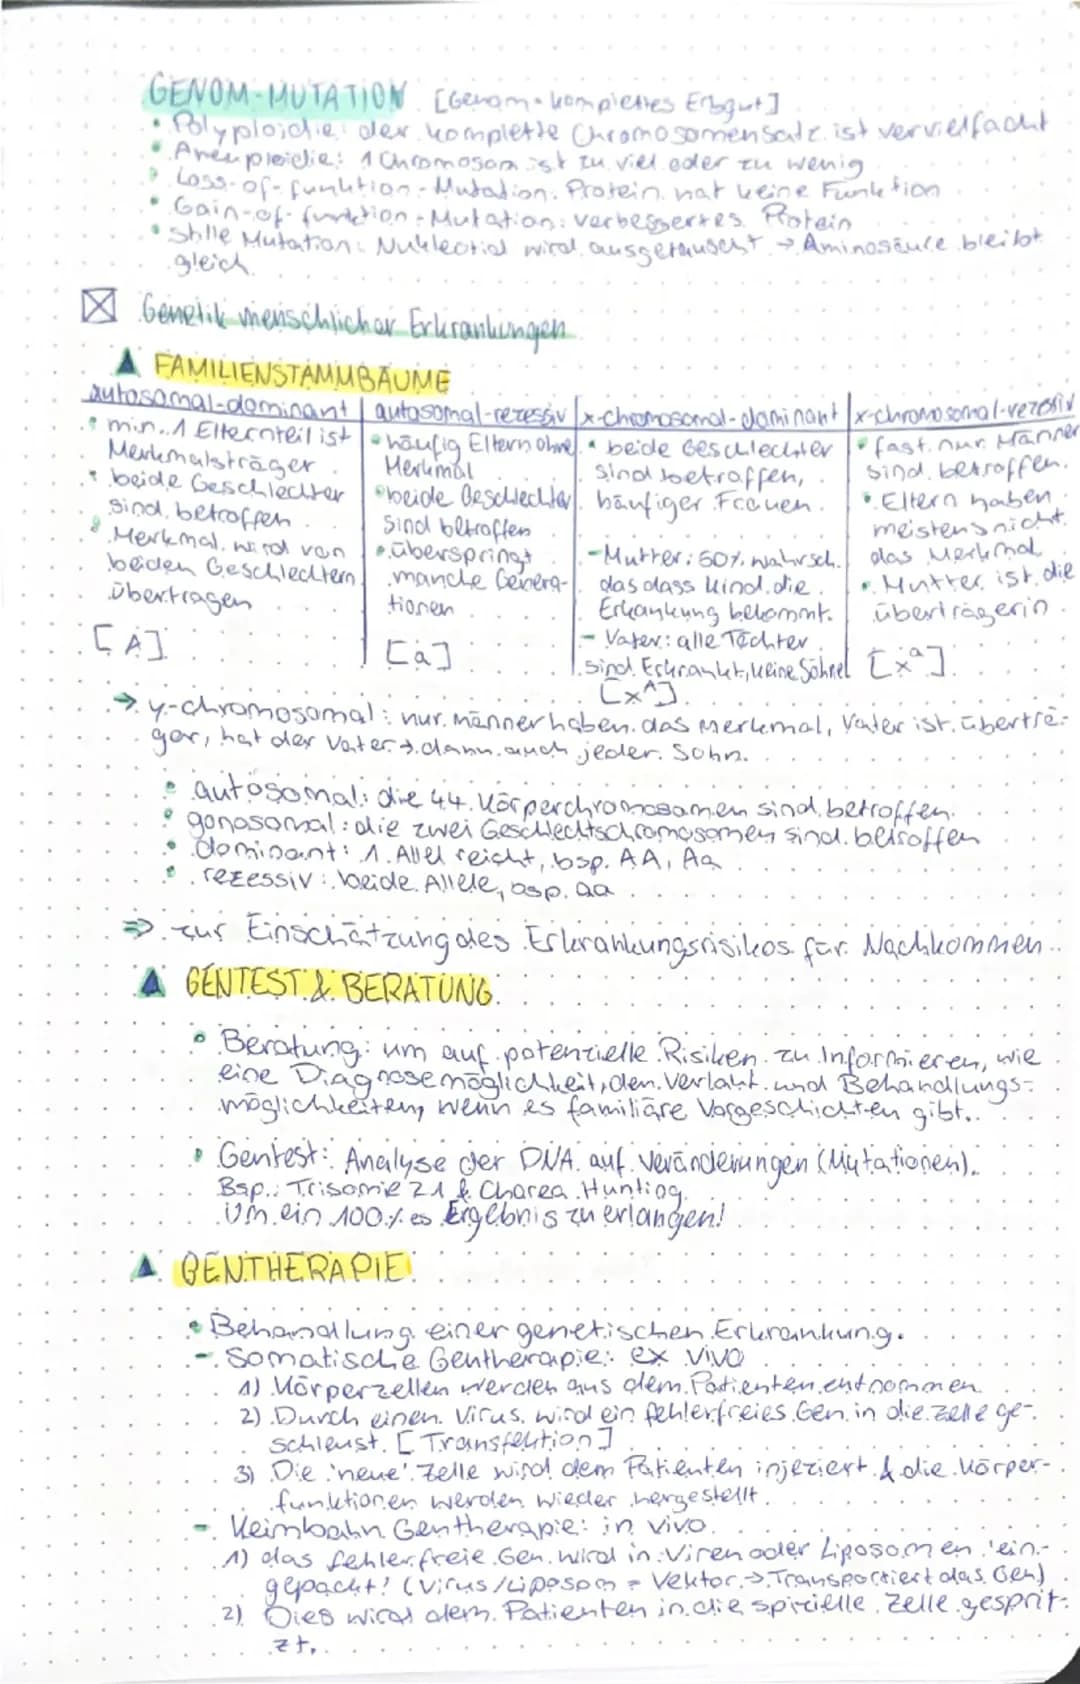 GENOM-MUTATION [Genom = komplettes Erbgut]
• Polyploidie: der komplette Chromosomensatz ist vervielfacht
• Aneuploidie: 1 Chromosom ist zu viel oder zu wenig
• Loss-of-funktion-Mutation: Protein hat keine Funktion
• Gain-of-funktion-Mutation: verbessertes Protein
• Stille Mutation: Nukleotid wird ausgetauscht → Aminosäure bleibt
gleich
☒ Genetik menschlicher Erkrankungen
▲ FAMILIENSTAMMBÄUME
autosomal-dominant
• min. 1 Elternteil ist
Merkmalsträger
• beide Geschlechter
sind betroffen
• Merkmal wird von
beiden Geschlechtern
übertragen
[A]
autosomal-rezessiv
• häufig Eltern ohne
Merkmal
• beide Geschlechter
sind betroffen
• überspringt
manche Genera-
tionen
[a]
x-chromosomal-dominant
• beide Geschlechter
sind betroffen,
häufiger Frauen
- Mutter: 50% wahrsch.
das dass kind die
Erkankung bekommt.
- Vater: alle Töchter
sind Erkrankt, keine Söhne
[x^A]
x-chromosomal-rezessiv
• fast nur Männer
sind betroffen.
• Eltern haben
meistens nicht
das Merkmal
• Mutter ist die
überträgerin
[x^a]
→ y-chromosomal: nur männer haben das Merkmal, Vater ist überträ-
ger, hat der Vater → dann auch jeder Sohn.
• autosomal: die 44 Körperchromosomen sind betroffen.
• gonosomal: die zwei Geschlechtschromosomen sind betroffen
• dominant: 1 Allel reicht, bsp. AA, Aa
• rezessiv: beide Allele, bsp. aa
⇒ zur Einschätzung des Erkrankungsrisikos für Nachkommen
▲ GENTEST & BERATUNG
• Beratung: um auf potenzielle Risiken zu Informieren, wie
eine Diagnosemöglichkeit, den Verlauf und Behandlungs-
möglichkeiten, wenn es familiäre Vorgeschichten gibt.
• Gentest: Analyse der DNA auf Veränderungen (Mutationen).
Bsp.: Trisomie 21 & Chorea Hunting
Um ein 100%es Ergebnis zu erlangen!
▲ GENTHERAPIE
• Behandlung einer genetischen Erkrankung.
- Somatische Gentherapie: ex vivo
1) Körperzellen werden aus dem Patienten entnommen
2) Durch einen Virus wird ein fehlerfreies Gen in die Zelle ge-
schleust. [Transfektion]
3) Die 'neue' Zelle wird dem Patienten injeziert & die Körper-
funktionen werden wieder hergestellt.
- Keimbahn Gentherapie: in vivo
1) das fehlerfreie Gen wird in Viren oder Liposomen 'ein-
gepackt' (Virus/Liposom = Vektor → Transportiert das Gen)
2) Dies wird dem Patienten in die spizielle Zelle gesprit-
zt.